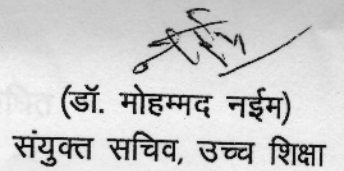 (डॉ. मोहम्मद नईम)
संयुक्त सचिव, उच्च शिक्षा